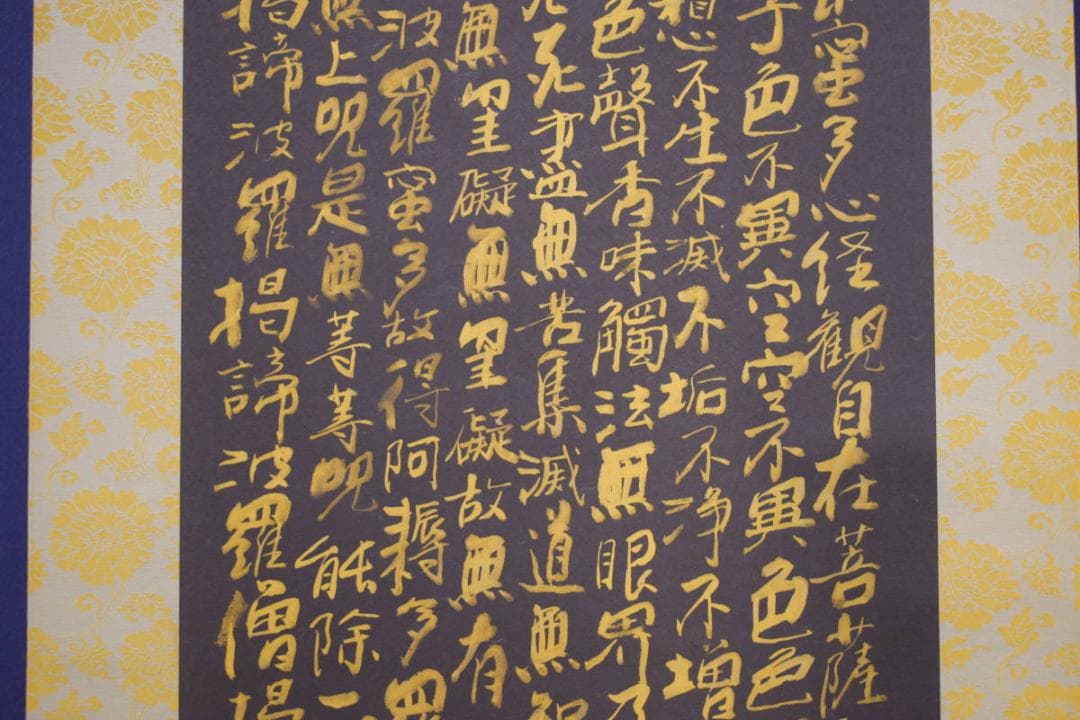 蜜多心経観自在菩薩
子色不異空空不異色色
想不生不滅不垢不净不增
色聲香味觸法無眼界乃
死盡無苦集滅道無智
無罣礙無罣礙故無有
波羅蜜多故得阿耨多羅
無上呪是無等等呪能除一
揭諦波羅揭諦波羅僧揭